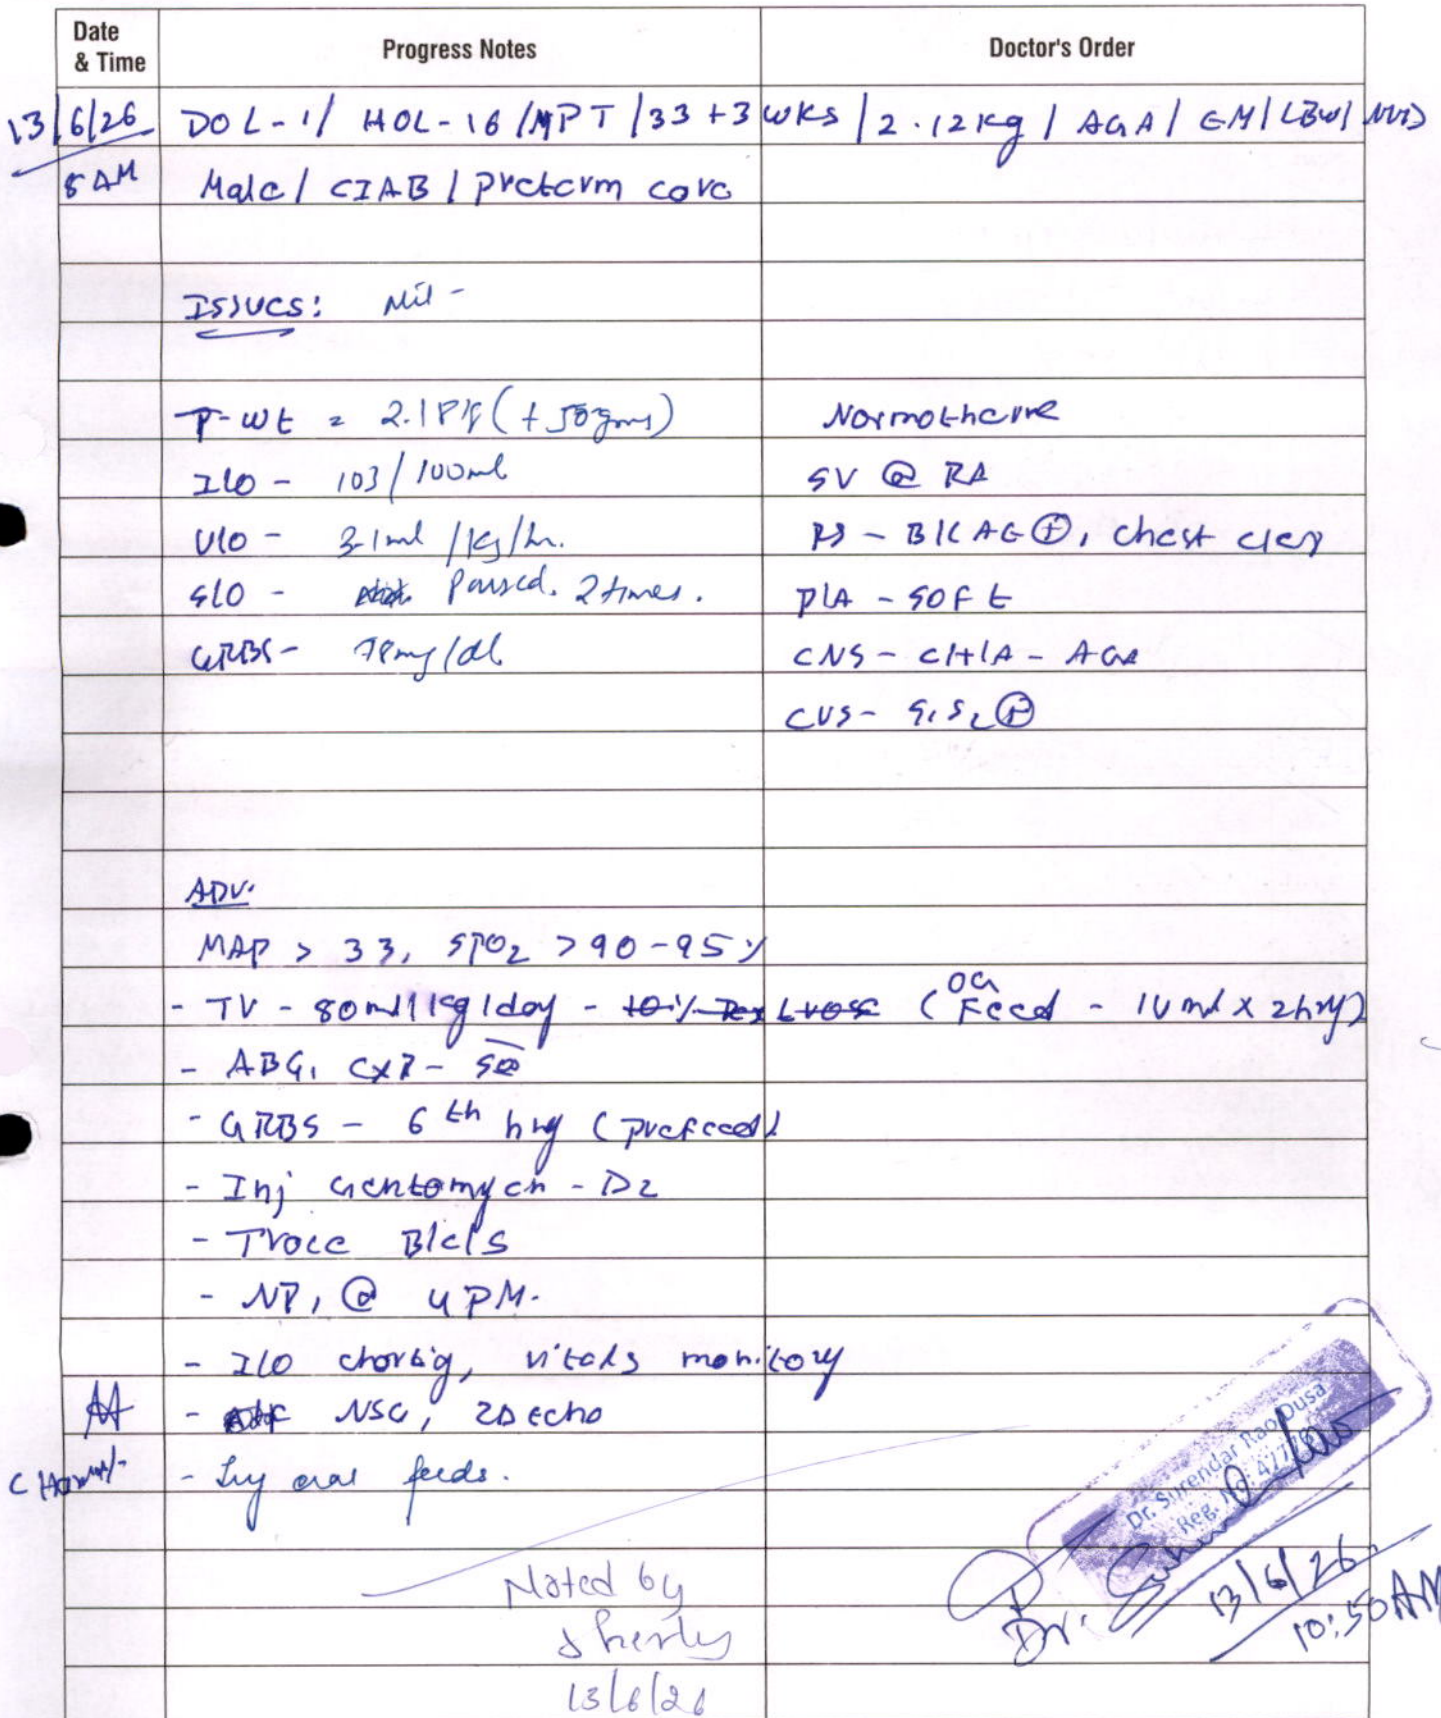 Date & Time
Progress Notes
Doctor's Order
13/6/26 DOL-1/ HOL-16/MPT/33+3 wks/2.12kg/ AGA/ EM/LBW/NVD
8 AM Male/ CIAB/ preterm care
Issues: Nil -
P-wt = (+50gms) Normotherme
I/O - 103/100ml SV @ RA
U/O - 3.1ml /kg/hr. RS - B/L AE ⊕, chest clear
S/O - Passed. 2 times. P/A - soft
GRBS - 78mg/dl CNS - C/T/A - AGA
CVS - S1S2 ⊕
ADV.
MAP > 33, SPO2 > 90-95%
- TV - 80ml/kg/day - 10% Dextrose (OG Feed - 14ml x 2hry)
- ABG, CXR - SOS
- GRBS - 6th hry (prefeed)
- Inj Gentomycin - D2
- Trace Bl c/s
- NP, @ 4PM.
- I/O chartig, vitals monitory
- NSG, 2D echo
- Try oral feeds.
Noted by
Sherly
13/6/26
Dr. Surendar Rao Dusa
Reg. No: 
Dr.
13/6/26
10:50AM